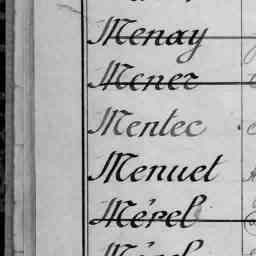 Menay
Mener
Mentec
Menuet
Mérel